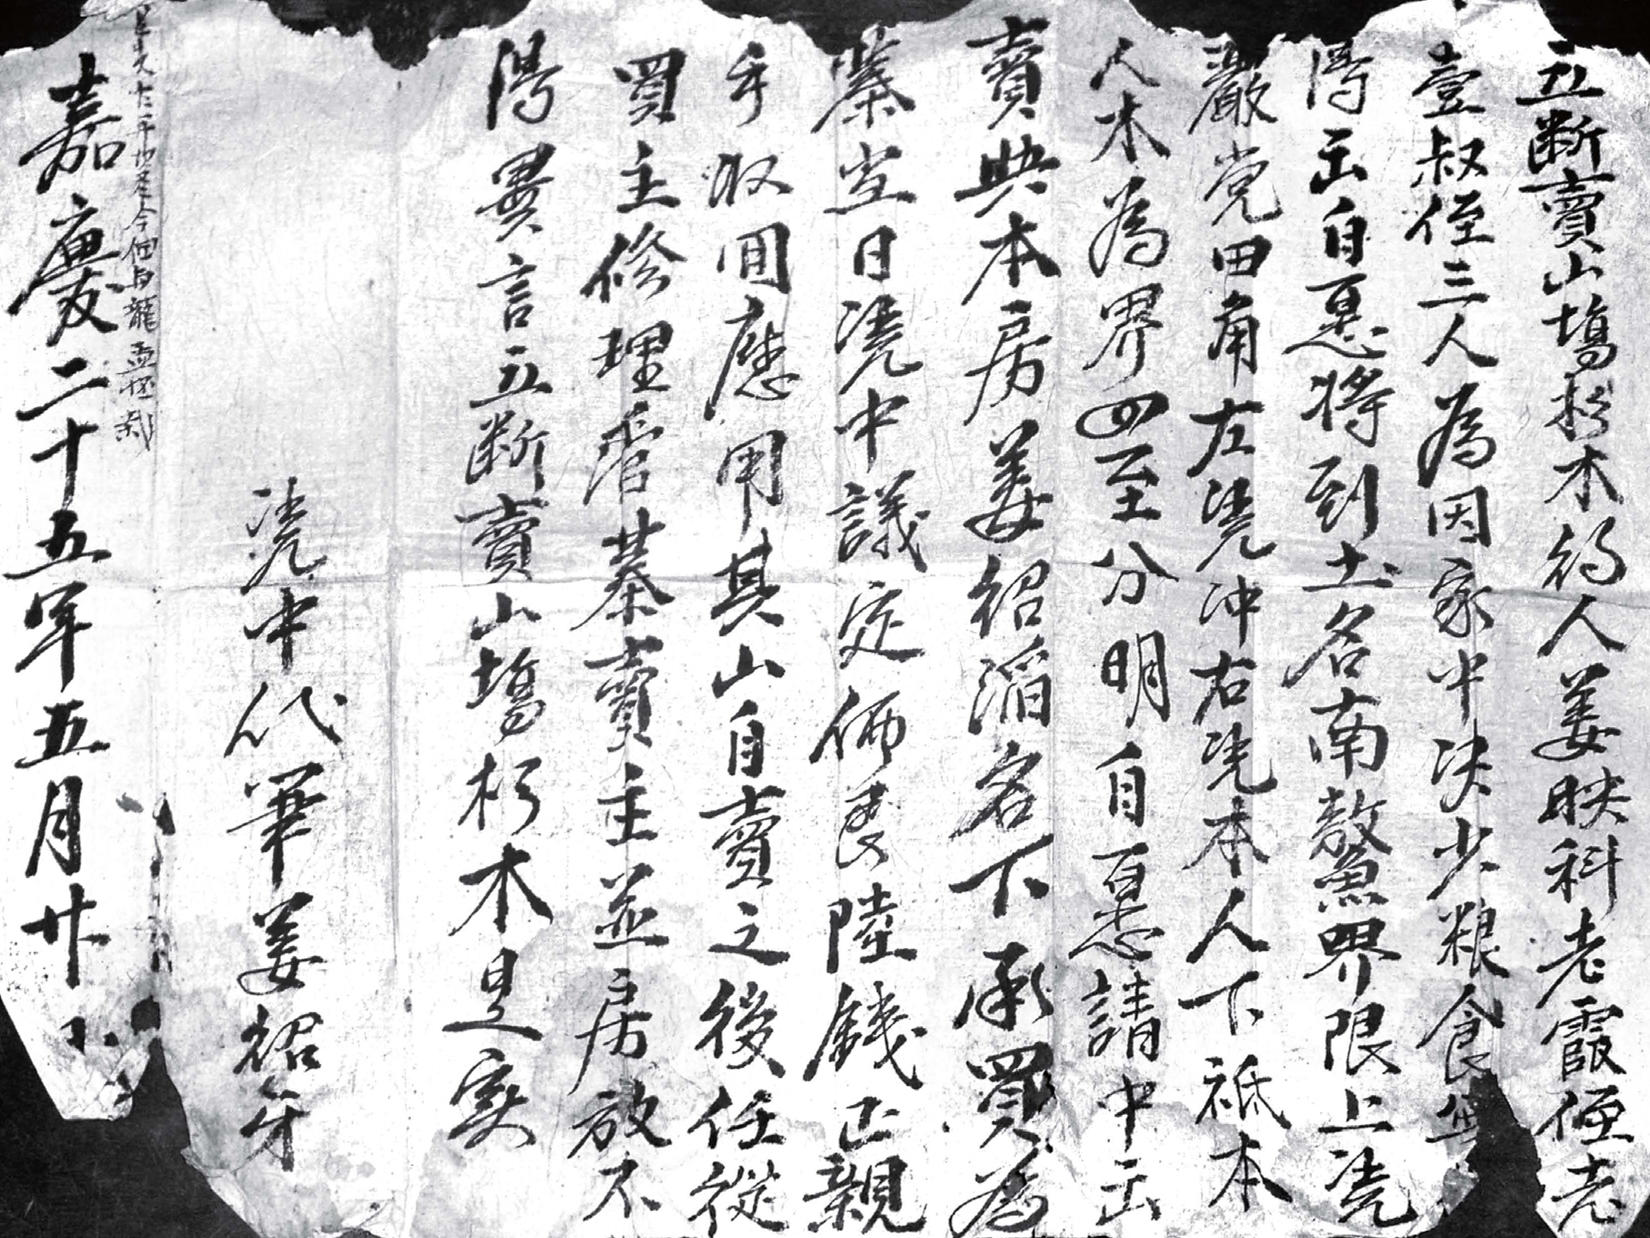 立断賣山塲杉木約人姜映科老霞侄老
壹叔侄三人為因家中决少粮食無
得出自愿將到土名南鰲魚界限上凭
巖党田角左凭冲右凭本人下祗本
人木為界四至分明自愿請中出
賣與本房姜紹滔名下承買為
業當日凭中議定價艮陸錢正親
手收回應用其山自賣之後任從
買主修理管業賣主並房放不
得異言立断賣山塲杉木是实
凭中代筆姜紹牙
嘉慶二十五年五月廿